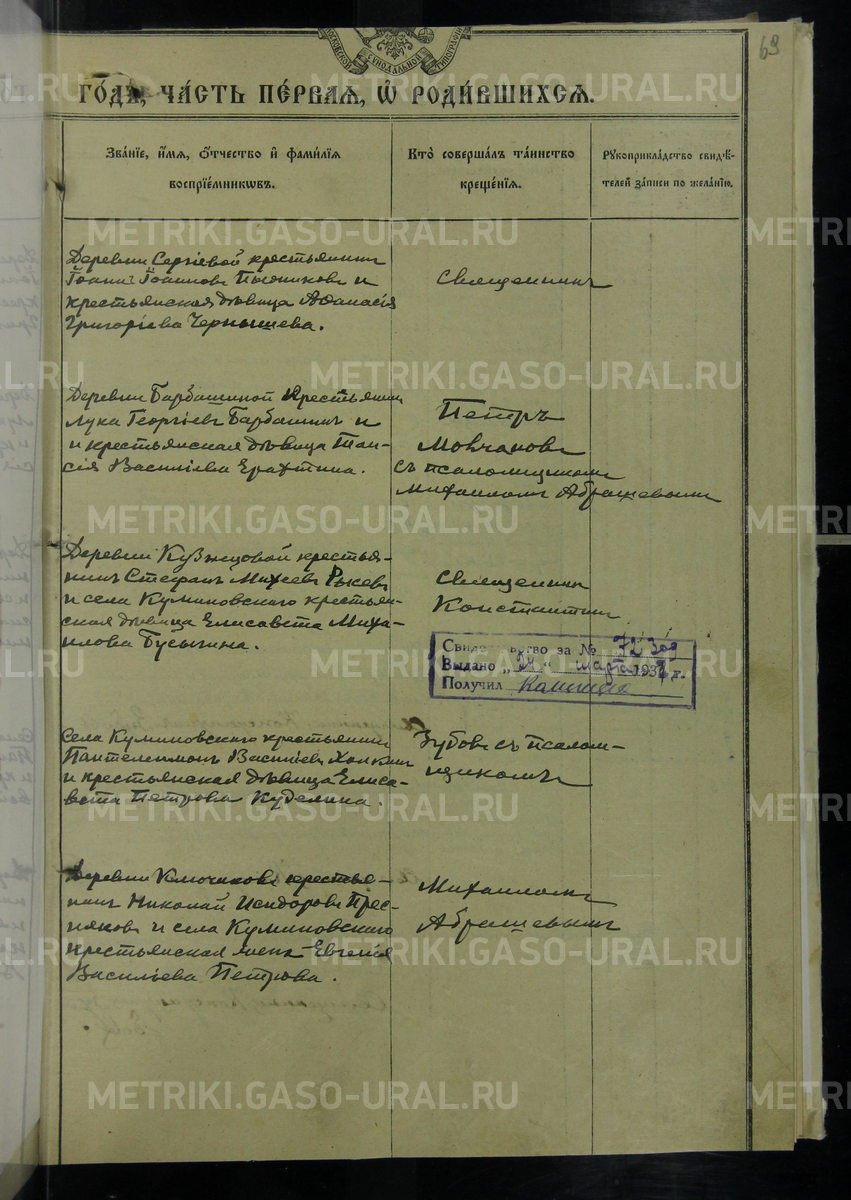 МОСКОВСКОЙ СѴНОДАЛЬНОЙ ТИПОГРАФІИ
63
го́да, ча́сть пе́рваѧ, ѡ҆ роди́вшихсѧ.
Зва́нїе, и҆́мѧ, ѻ҆́тчество и҆ фами́лїѧ
воспрїе́мникѡвъ.
Кто̀ соверша́лъ та́инство
креще́нїѧ.
Рꙋкоприкла́дство свидѣ́-
телей за́писи по жела́нїю.
Деревни Сергіевой крестьянинъ
Іоаннъ Іоанновъ и
крестьянская дѣвица Афанасія
Григоріева Чернышева.
Священникъ
Деревни Барбашиной крестьянинъ
Лука Георгіевъ Барбашинъ и
и крестьянская дѣвица Таи-
сія Василіева Ерахтина.
Петръ
Молчановъ
съ псаломщикомъ
Михаиломъ Абрашевымъ
Деревни Кузнецовой крестья-
нинъ Стефанъ Михеевъ Рысевъ
и села Куминовскаго крестьян-
ская дѣвица Елисавета Миха-
илова Бусыгина.
Священникъ
Константинъ
Свиде во за №
Выдано „24“ марта 193 г.
Получил
Села Куминовскаго крестьянинъ
Пантелеимонъ Василіевъ Холкинъ
и крестьянская дѣвица Елиса-
вета Петрова Куделина.
Зубовъ съ псалом-
щикомъ
Деревни Ключиковъ крестья-
нинъ Николай Исидоровъ Прес-
няковъ и села Куминовскаго
крестьянская жена Евгенія
Василіева Петрова.
Михаиломъ
Абрашевымъ
METRIKI.GASO-URAL.RU